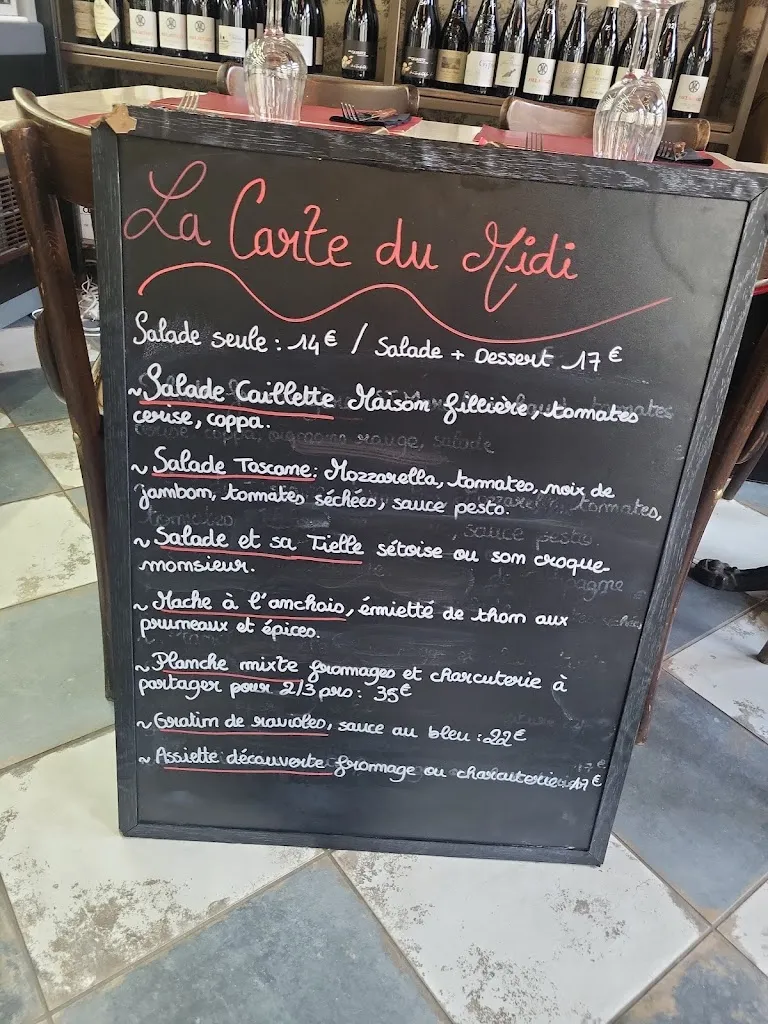 La Carte du Midi
Salade seule : 14€ / Salade + Dessert 17€
~ Salade Caillette Maison fillière, tomates
cerise, coppa.
~ Salade Toscane : Mozzarella, tomates, noix de
jambon, tomates séchées, sauce pesto.
~ Salade et sa Tielle sétoise ou son croque-
monsieur.
~ Mache à l'anchois, émietté de thon aux
pruneaux et épices.
~ Planche mixte fromages et charcuterie à
partager pour 2/3 prs : 35€
~ Gratin de ravioles, sauce au bleu : 22€
~ Assiette découverte fromage ou charcuterie : 17€